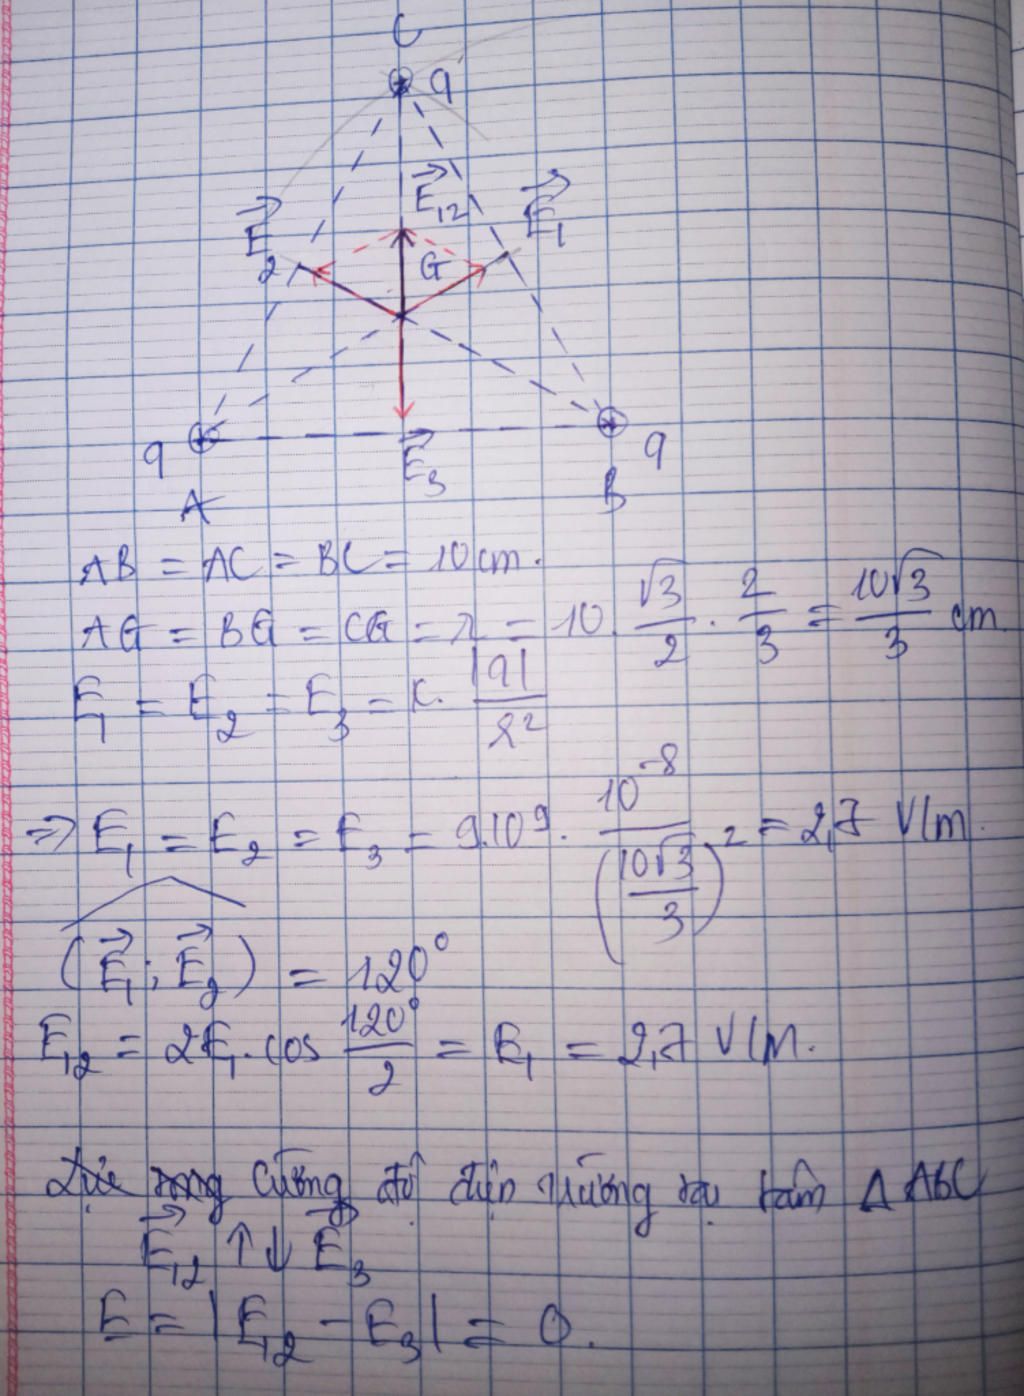 C
q
E₁₂
E₁
E₂
G
q
E₃
q
A
B
AB = AC = BC = 10 cm.
AG = BG = CG = r = 10. √3/2 . 2/3 = 10√3/3 cm
E₁ = E₂ = E₃ = K. |q|/r²
=> E₁ = E₂ = E₃ = 9.10⁹. 10⁻⁸/(10√3/3)² = 2,7 V/m.
(E₁; E₂) = 120°
E₁₂ = 2E₁. cos 120°/2 = E₁ = 2,7 V/m.
cường độ điện trường tại tâm Δ ABC
E₁₂ ↑↓ E₃
E = |E₁₂ - E₃| = 0.